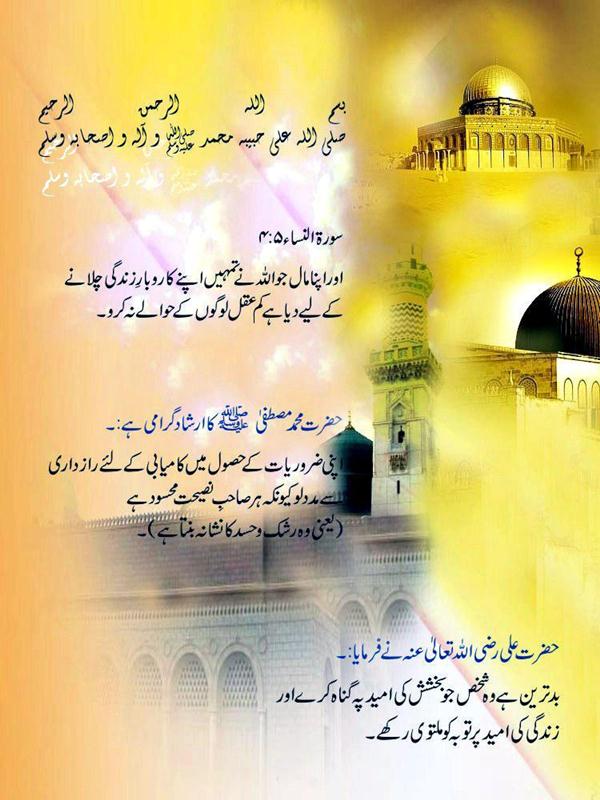 بسم اللہ الرحمن الرحیم
صلی اللہ علی حبیبہ محمد ﷺ و آلہ و اصحابہ وسلم
سورۃ النساء ۴:۵
اور اپنا مال جو اللہ نے تمہیں اپنے کاروبارِ زندگی چلانے
کے لیے دیا ہے کم عقل لوگوں کے حوالے نہ کرو۔
حضرت محمد مصطفیٰ ﷺ کا ارشاد گرامی ہے:۔
اپنی ضروریات کے حصول میں کامیابی کے لئے رازداری
سے مدد لو کیونکہ ہر صاحبِ نصیحت محسود ہے
(یعنی وہ رشک و حسد کا نشانہ بنتا ہے)۔
حضرت علی رضی اللہ تعالیٰ عنہ نے فرمایا:۔
بدترین ہے وہ شخص جو بخشش کی امید پہ گناہ کرے اور
زندگی کی امید پر توبہ کو ملتوی رکھے۔